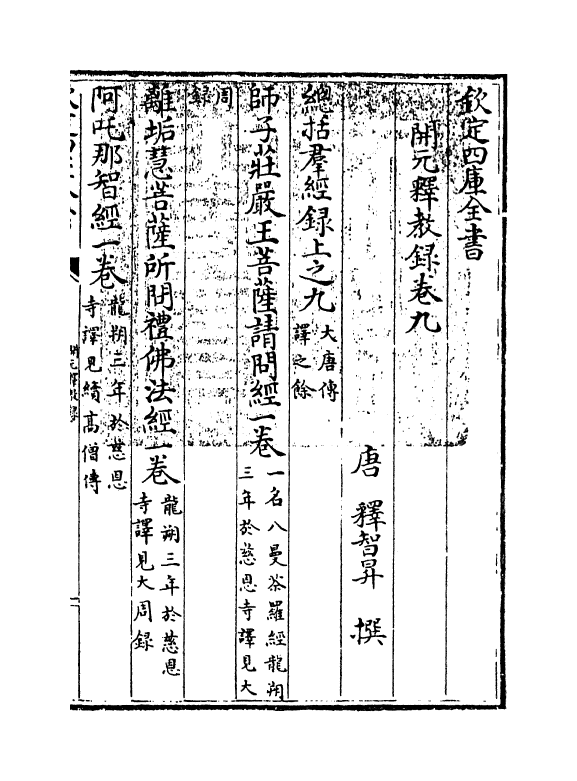 欽定四庫全書
開元釋教録卷九
唐 釋智昇 撰
總括羣經録上之九大唐傳譯之餘
師子莊嚴王菩薩請問經一卷一名八曼荼羅經龍朔三年於慈恩寺譯見大
周録
離垢慧菩薩所問禮佛法經一卷龍朔三年於慈恩寺譯見大周録
阿吒那智經一卷龍朔三年於慈恩寺譯見續高僧傳